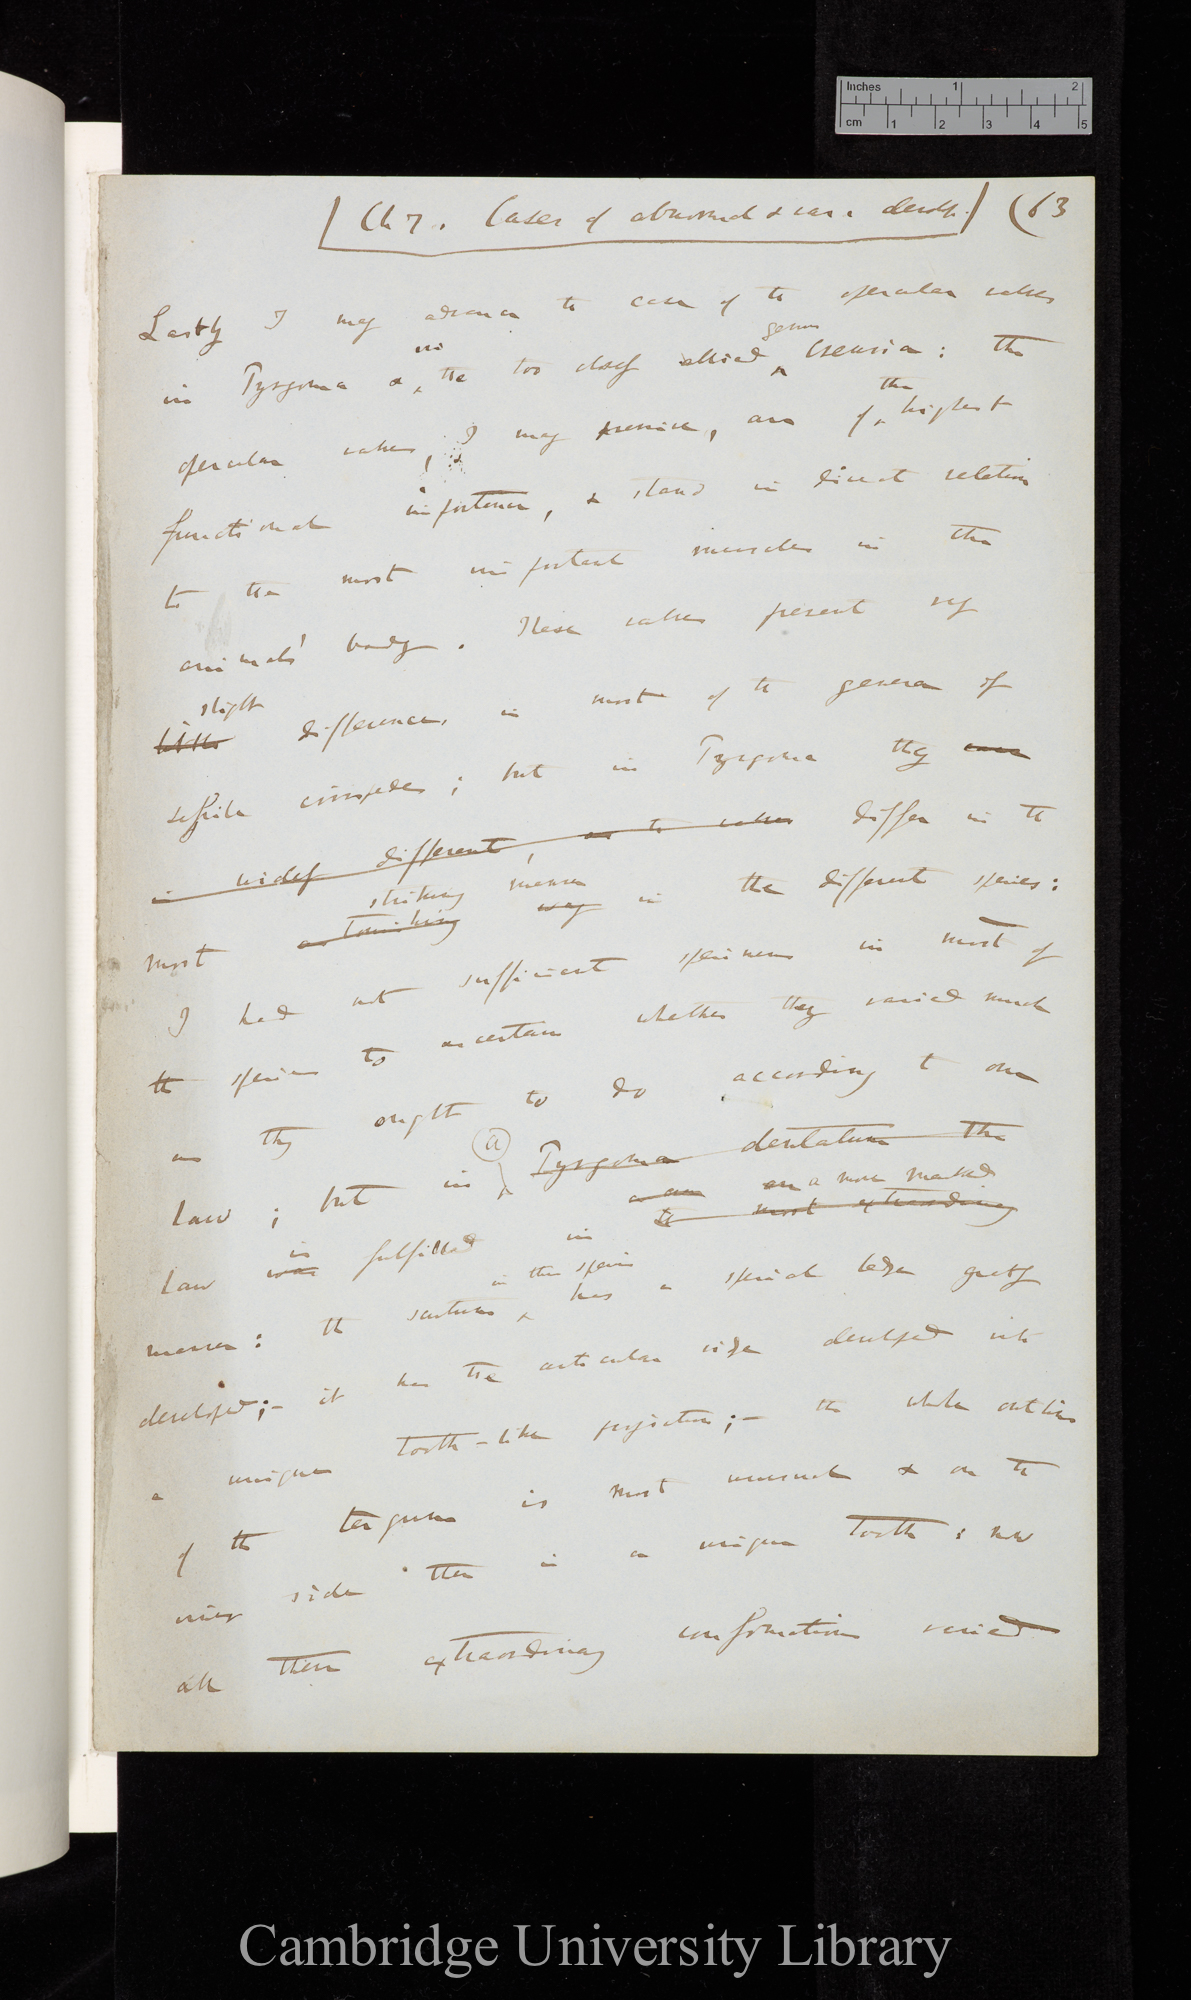 Inches 1 2
cm 1 2 3 4 5
Ch 7. Cases of abnormal & rare develp. (63
Lastly I may advance the case of the opercular valves
in
genus
in Pyrgoma & the too closely allied Creusia: the
the
opercular valves, I may premise, are of highest
functional importance, & stand in direct relation
to the most important muscles in the
animals' body. These valves present very
slight
little differences in most of the genera of
sessile cirripedes; but in Pyrgoma they are
in widely different, as the valves differ in the
striking manner
most astonishing way in the different species:
I had not sufficient specimens in most of
the species to ascertain whether they varied much
as they ought to do according to our
(a)
law; but in Pyrgoma dentatum the
a more marked
is
law was fulfilled in the most extraordinary
in this species
manner: the scutum has a special ledge greatly
developed;— it has the articular ridge developed into
a unique tooth-like projection;— the whole outline
of the tergum is most unusual & on the
inner side there is a unique tooth: now
all these extraordinary conformations varied
Cambridge University Library